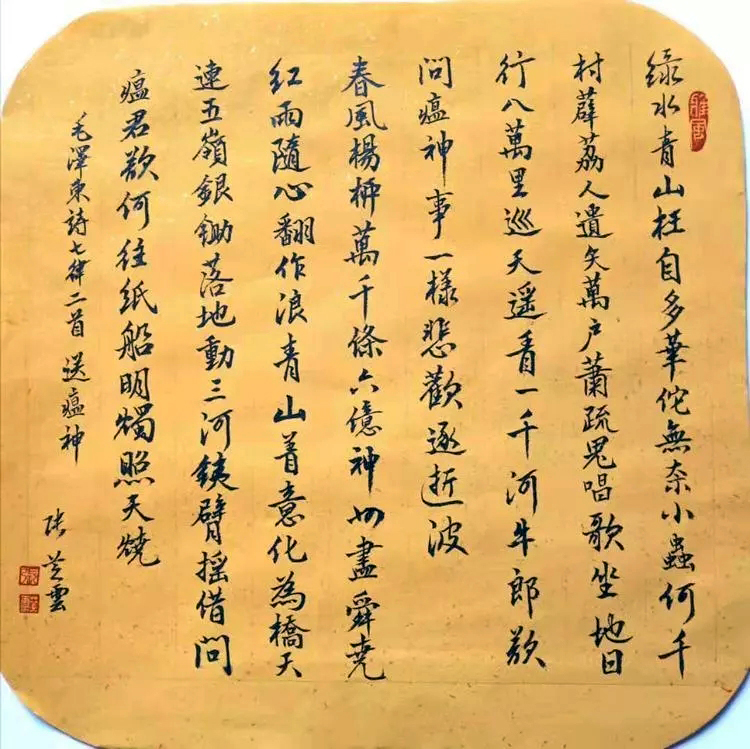 绿水青山枉自多華佗無奈小蟲何千
村薜荔人遺矢萬户蕭疏鬼唱歌坐地日
行八萬里巡天遥看一千河牛郎欲
問瘟神事一樣悲歡逐逝波
春風楊柳萬千條六億神州盡舜堯
红雨隨心翻作浪青山着意化為橋天
連五嶺銀鋤落地動三河鐵臂摇借問
瘟君欲何往紙船明燭照天燒
毛澤東詩七律二首 送瘟神
张芝雲